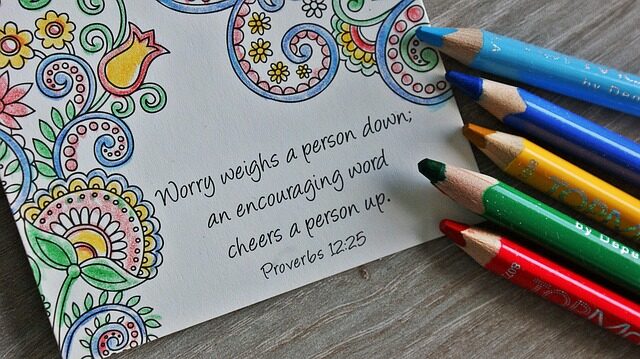 Worry weighs a person down;
an encouraging word
cheers a person up.
Proverbs 12:25
by Depe